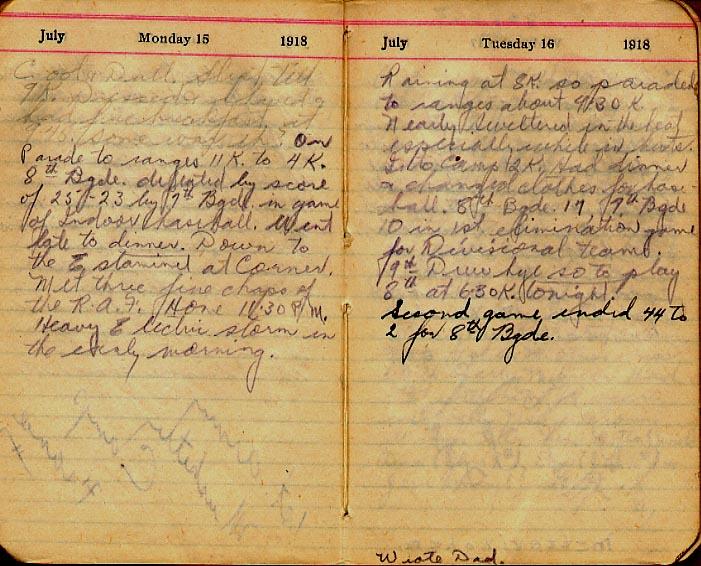 July Monday 15 1918
Cool & Dull. Slept till
9K.
had fine breakfast at
9:45. some
On
Parade to ranges 11 K. to 4 K.
8th Bgde. defeated by score
of 25-23 by 9th Bgde. in game
of Indoor baseball. Went
late to dinner. Down to
the Estaminet at Corner.
Met three fine chaps of
the R.A.F. Home 11:30 P.M.
Heavy Electric storm in
the early morning.
July Tuesday 16 1918
Raining at 8K. so paraded
to ranges about 9:30 K.
Nearly sweltered in the heat
especially while in
to Camp 2K. Had dinner
& changed clothes for base-
ball. 8th Bgde 17 9th Bgde
10 in 1st. elimination game
for Divisional Teams.
9th Drew bye so to play
8th at 6:30 K. tonight.
Second game ended 44 to
2 for 8th Bgde.
Wrote Dad.